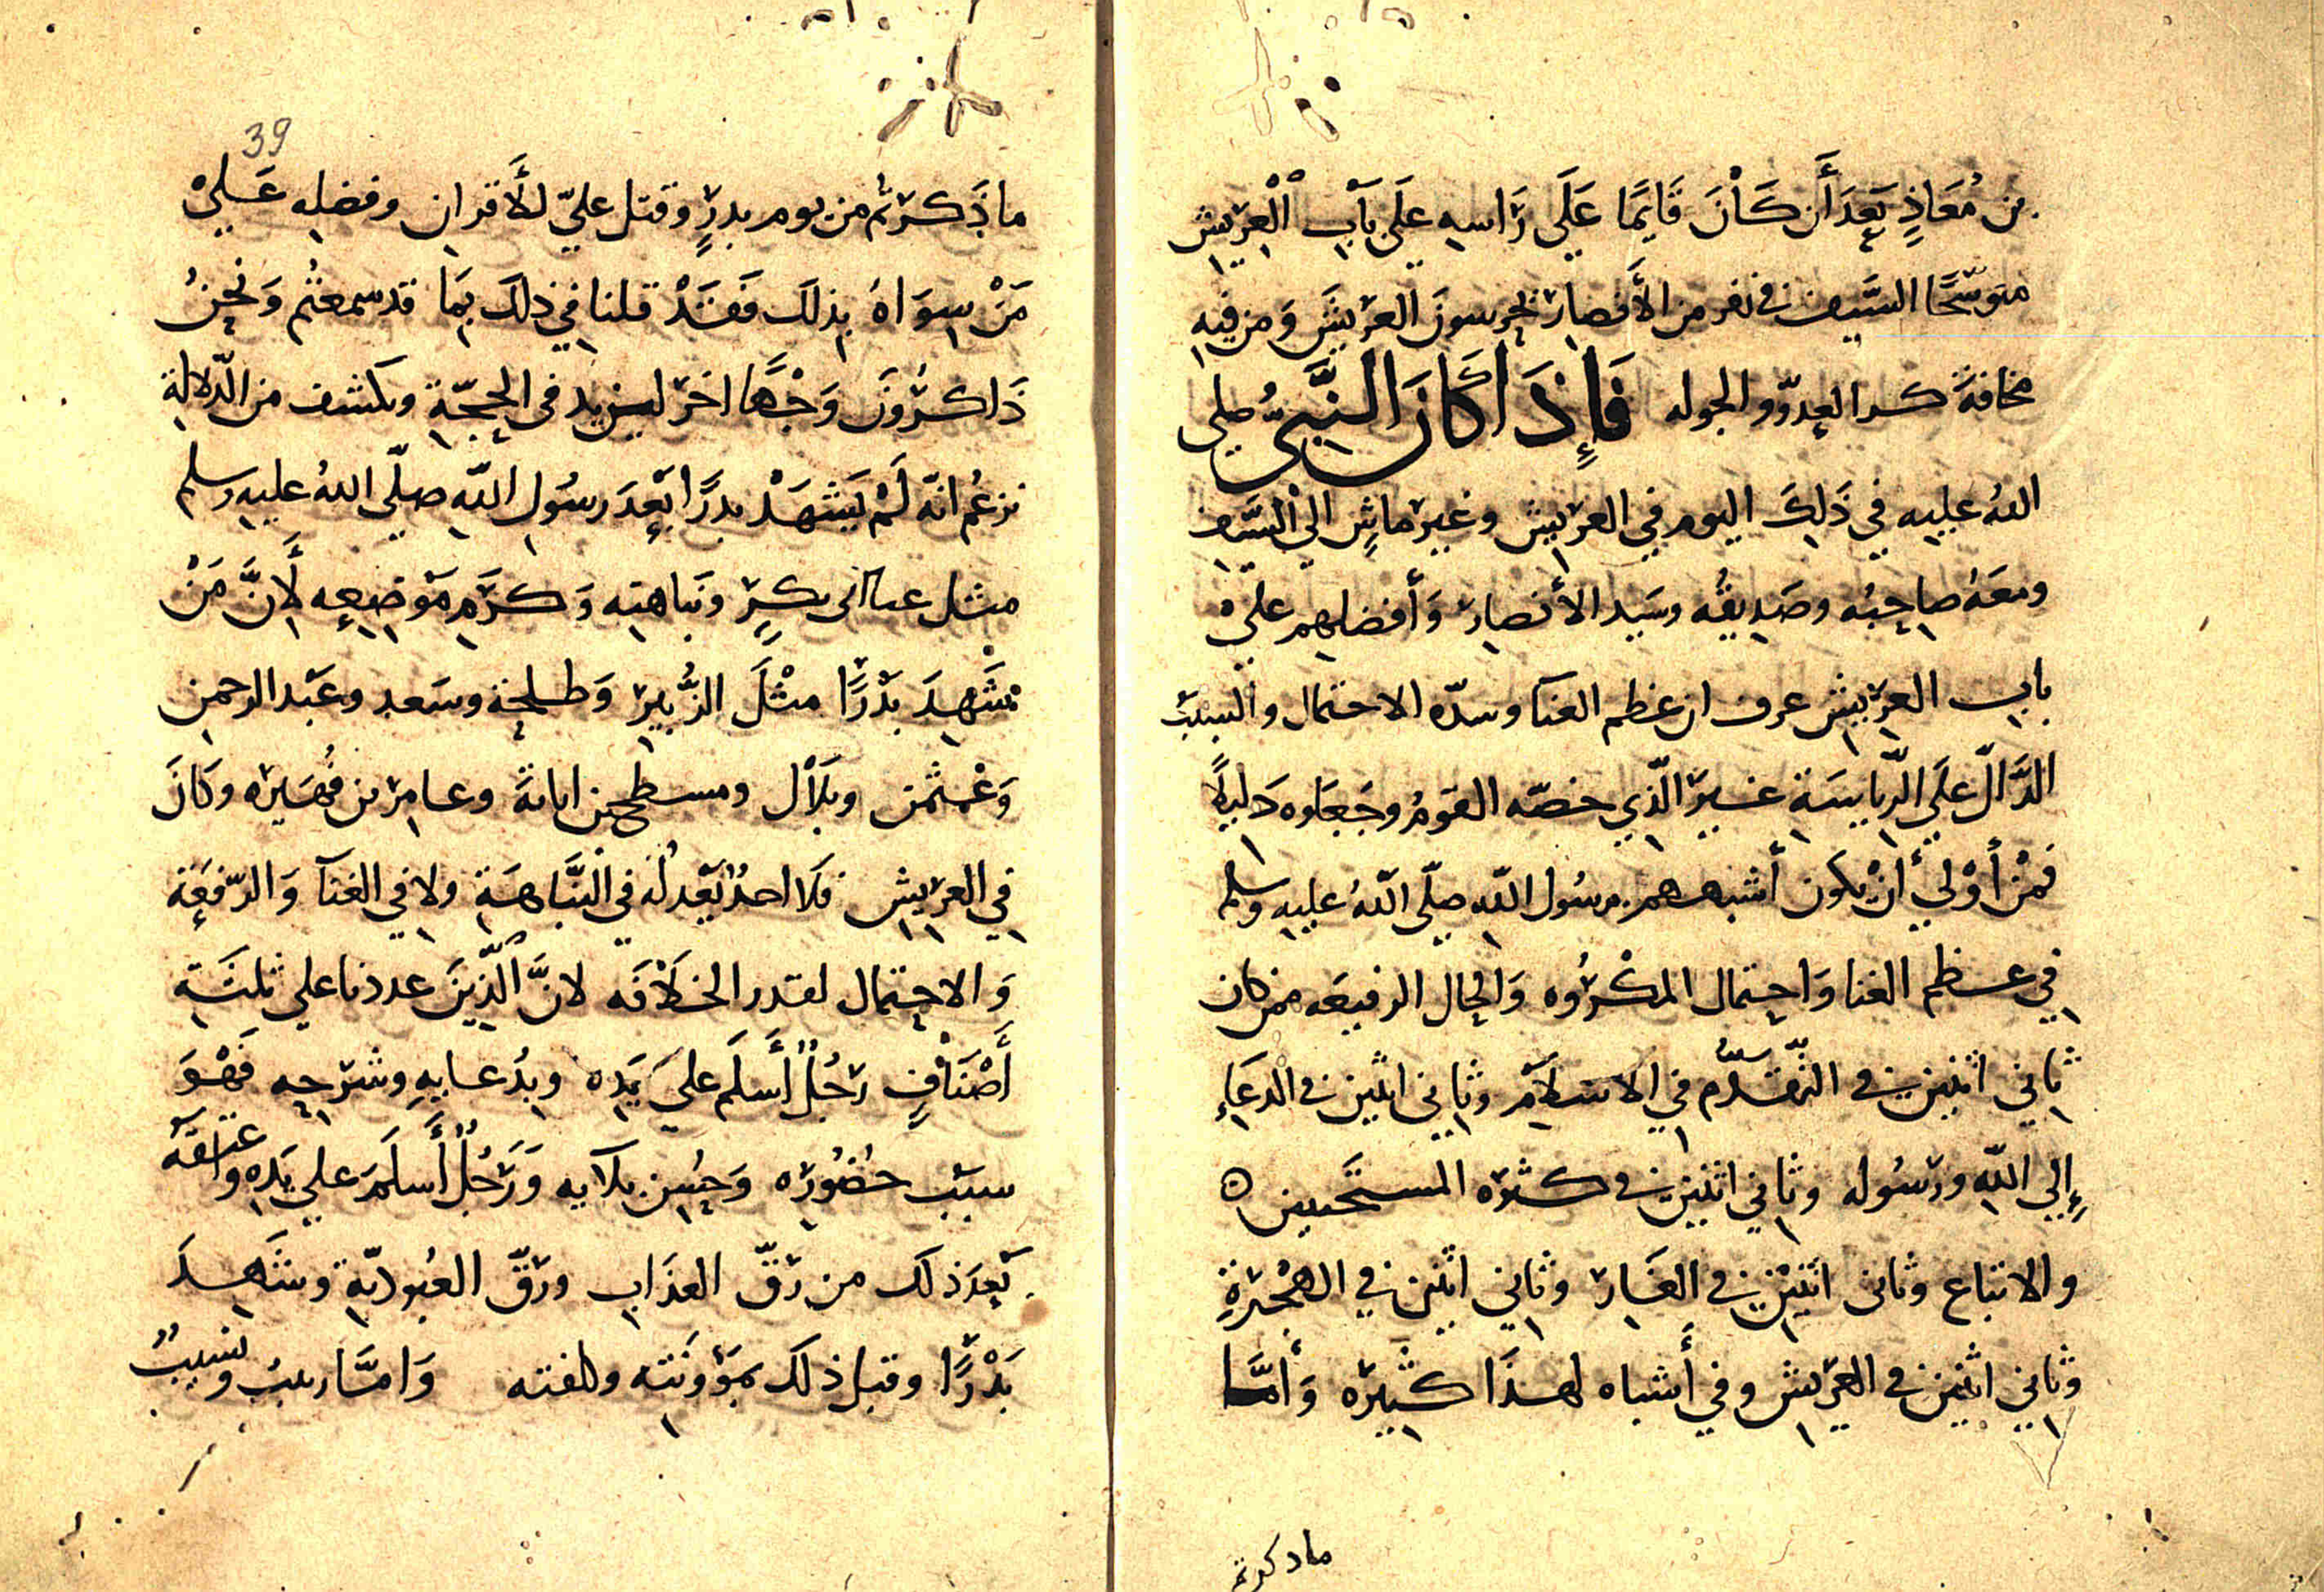 بن مُعَاذٍ بَعدَ أَن كَاْنَ قَايِمًا عَلَي رَاسهِ علَي بَاْب اْلْعَرِيش
متوشّحًا السَّيف في نفر من الأَنصار يحرسونَ العرِيشَ وَمن فيهِ
مخافةَ كر العدوّ والجوله فَإِذَا كَانَ النَّبيُّ صلي
اللهُ عليه في ذَلِكَ اليوم في العرِيش وغير ماشٍ الي السَّيف
ومعَهُ صاحِبُه وصَدِيقُه وسَيد الأنصار وَأفضلهم عليْ
باب العرِيش عرف ان عظم الغنآ وسدّه الاحتمال والسبَب
الدَّالّ علَي الرّيايسَة غَيرَ الّذي خصّه القومُ وجَعَلوه دَلِيلًا
فمَنْ أوْلي أنْ يكون أشبههم برسُول اللّه صلّي اللّهُ عليه وسلم
في عظم الغنا وَاحتِمال المكْرُوه وَالحال الرفيعَه ممن كان
ثاني اثنين في التّقَدّم في الاسْلاَمْ وثاني اثنين في الدعَاءِ
إِلي اللّه ورَسُوله وثاني اثنين في كثرَه المستَجيبين ٥
والاتباع وثاني اثنَيْنِ في الغَار وثاني اثنين في الهجْرَةِ
وثاني اثنين في العرِيش وفي أَشباه لهذَا كثِيرَه وَأمَّا
ما ذكرتم
39
ما ذَكرْتُم من يوم بدرٍ وقتل عليّ للأَقران وفضله عَليْ
مَنْ سِوَاهُ بِذلكَ فَقَدْ قلنا في ذلكَ بِمَا قد سمعتُم وَنحنُ
ذَاكرُونَ وَجْهًا اخرَ ليزيد في الحجّةِ ويكشف من الدّلالةِ
نزعُم انّه لَمْ يَشْهَدْ بدرًا بَعْدَ رسُول اللّه صلّي اللهُ عليه وسلم
مثل غنا ابي بكرٍ ونَباهتِه وَكرَمِ مَوْضِعِه لأَنَّ مَنْ
شَهِدَ بَدْرًا مثْلَ الزُّبير وَطلحة وسَعد وعَبْد الرحمن
وَعْثمن وبلاَل ومسطح بن اثاثةَ وعامر بن فُهَيره وكَانَ
في العرِيش فلا احدٌ يَعْدلُه في النَّباهَةِ ولا في الغنآ وَالرّفعَة
وَالاحتِمال لقدر الخلاَفَه لانَّ الَّذِينَ عددنا علي ثلثَةِ
أَصْنَافٍ رَجُلٌ أَسلَم علي يَدِه وبِدُعايهِ وشرَحِه فَهْوَ
سبَبُ حضُورِه وَحُسِن بلآيه وَرَجُلٌ أَسلَمَ علي يَدِه واعتقَه
بَعدَ ذلكَ من رَقّ العذَاب ورَقّ العُبوديّةِ وشَهدَ
بَدْرًا وقبل ذلكَ بمَؤونَته وكلفته وَامَّا